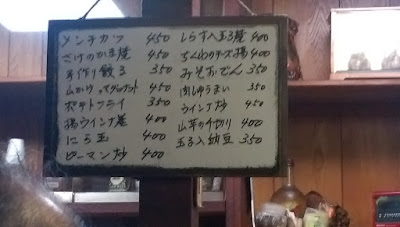 メンチカツ 450
さけのかま焼 450
手作り餃子 350
ポテトフライ 350
揚ウインナ巻 400
にら玉 400
ピーマン炒 400
しらす入玉子焼 400
ちくわのチーズ揚 400
みそおでん 350
肉しゅうまい 350
ウインナ炒 450
山芋の千切り 400
玉子入納豆 350